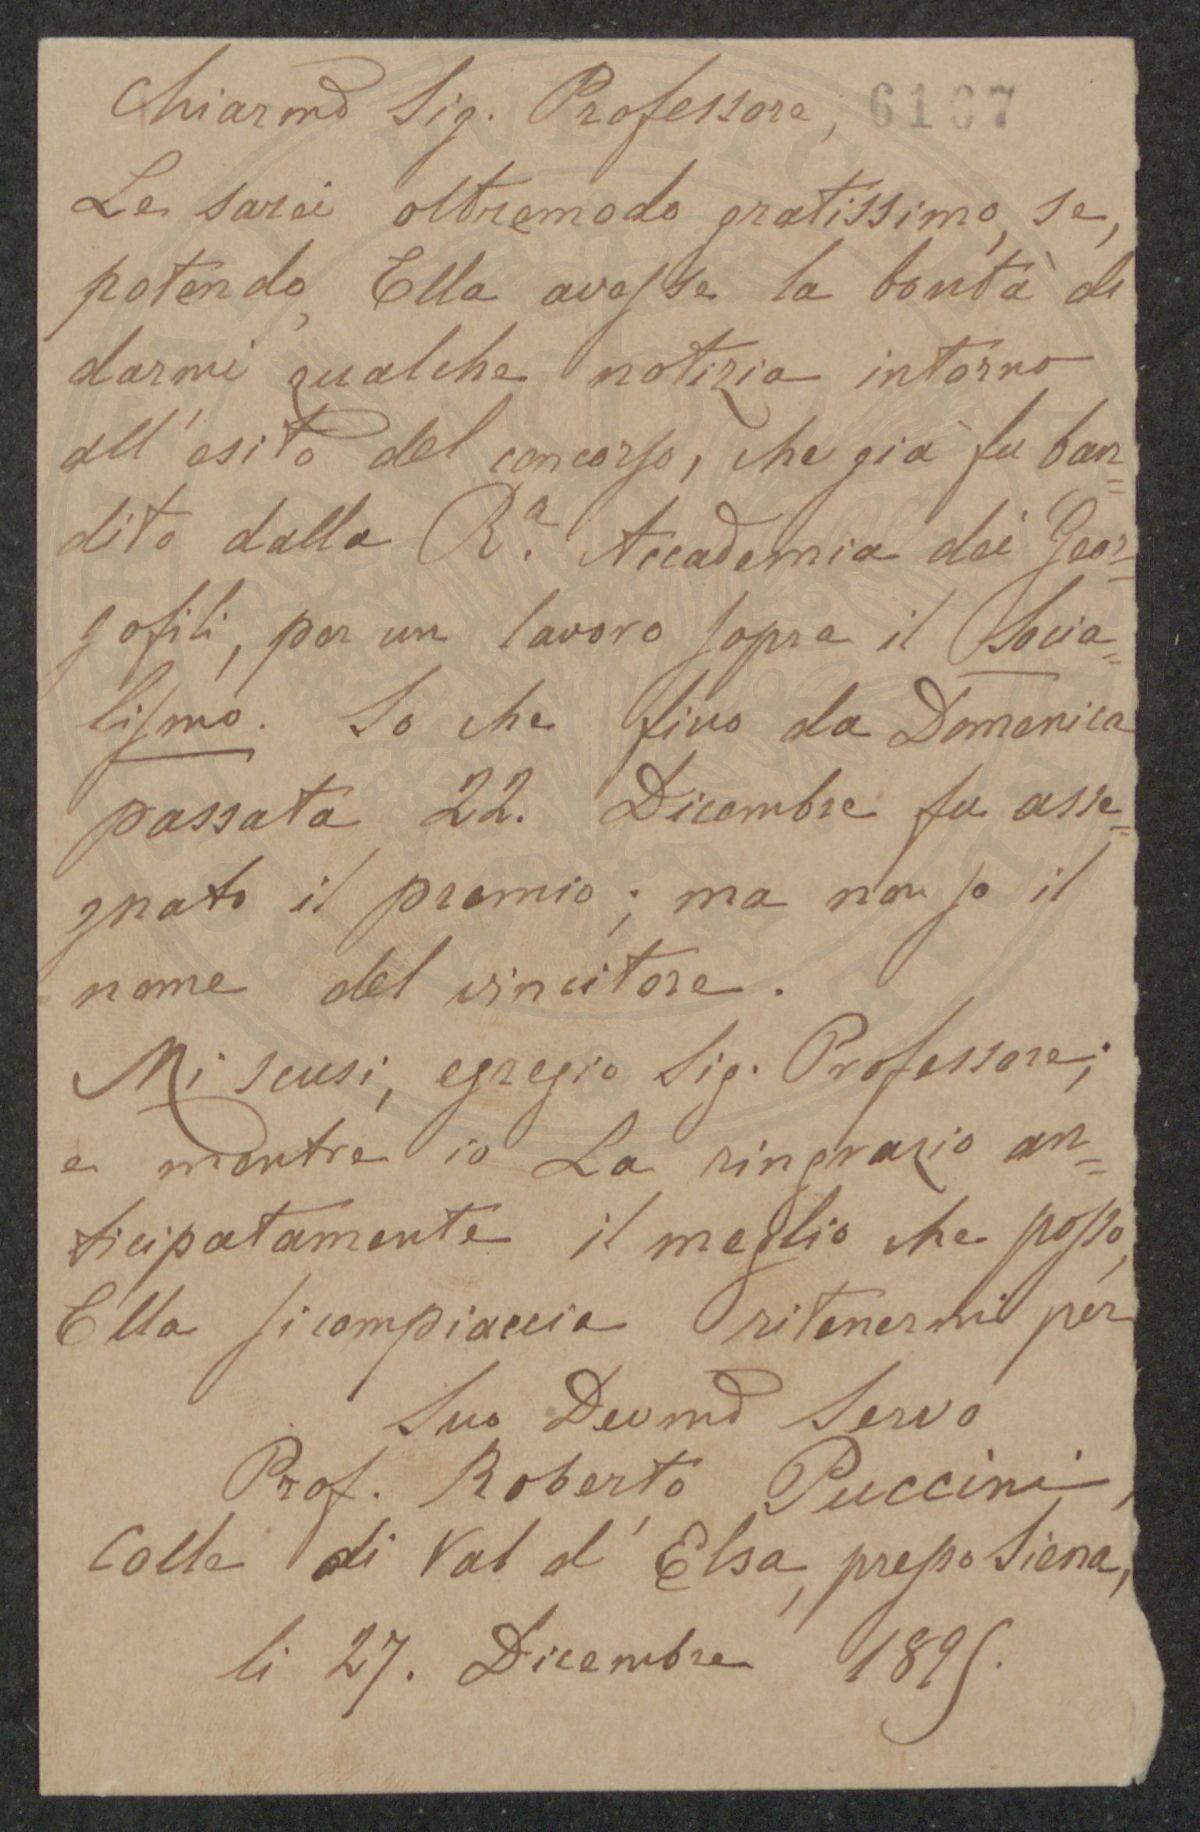 Chiarmo Sig. Professore, 6107
Le sarei oltremodo gratissimo, se,
potendo, Ella avesse la bontà di
darmi qualche notizia intorno
all'esito del concorso, che già fu ban=
dito dalla R.a Accademia dei Geor=
gofili, per un lavoro sopra il Socia=
lismo. So che fino da Domenica
passata 22. Dicembre fu asse=
gnato il premio; ma non so il
nome del vincitore.
Mi scusi, egregio Sig. Professore;
e mentre io La ringrazio an=
ticipatamente il meglio che posso,
Ella si compiaccia ritenermi per
Suo Devmo Servo
Prof. Roberto Puccini,
Colle di Val d'Elsa, presso Siena,
li 27. Dicembre 1895.